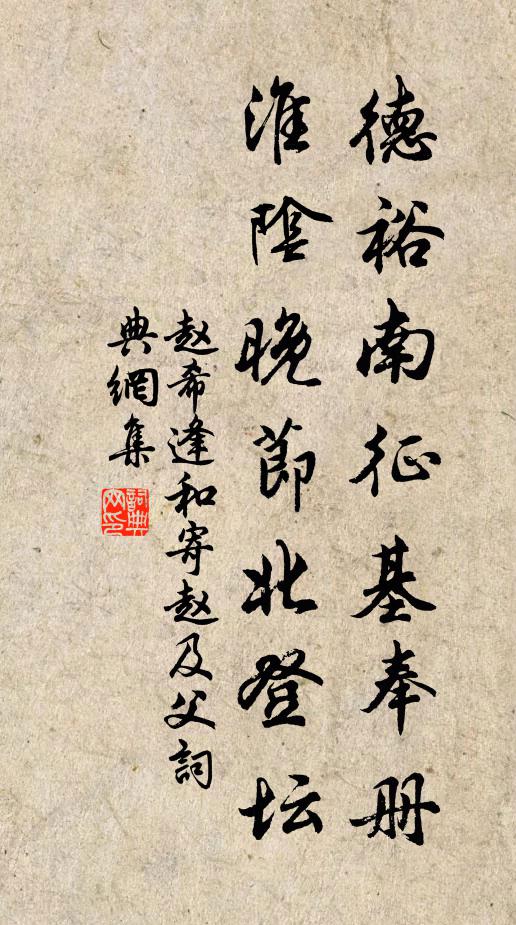 德裕南征基奉册
淮陰晚節北登坛
赵希逢和寄赵及父詞
典網集
詞典网印